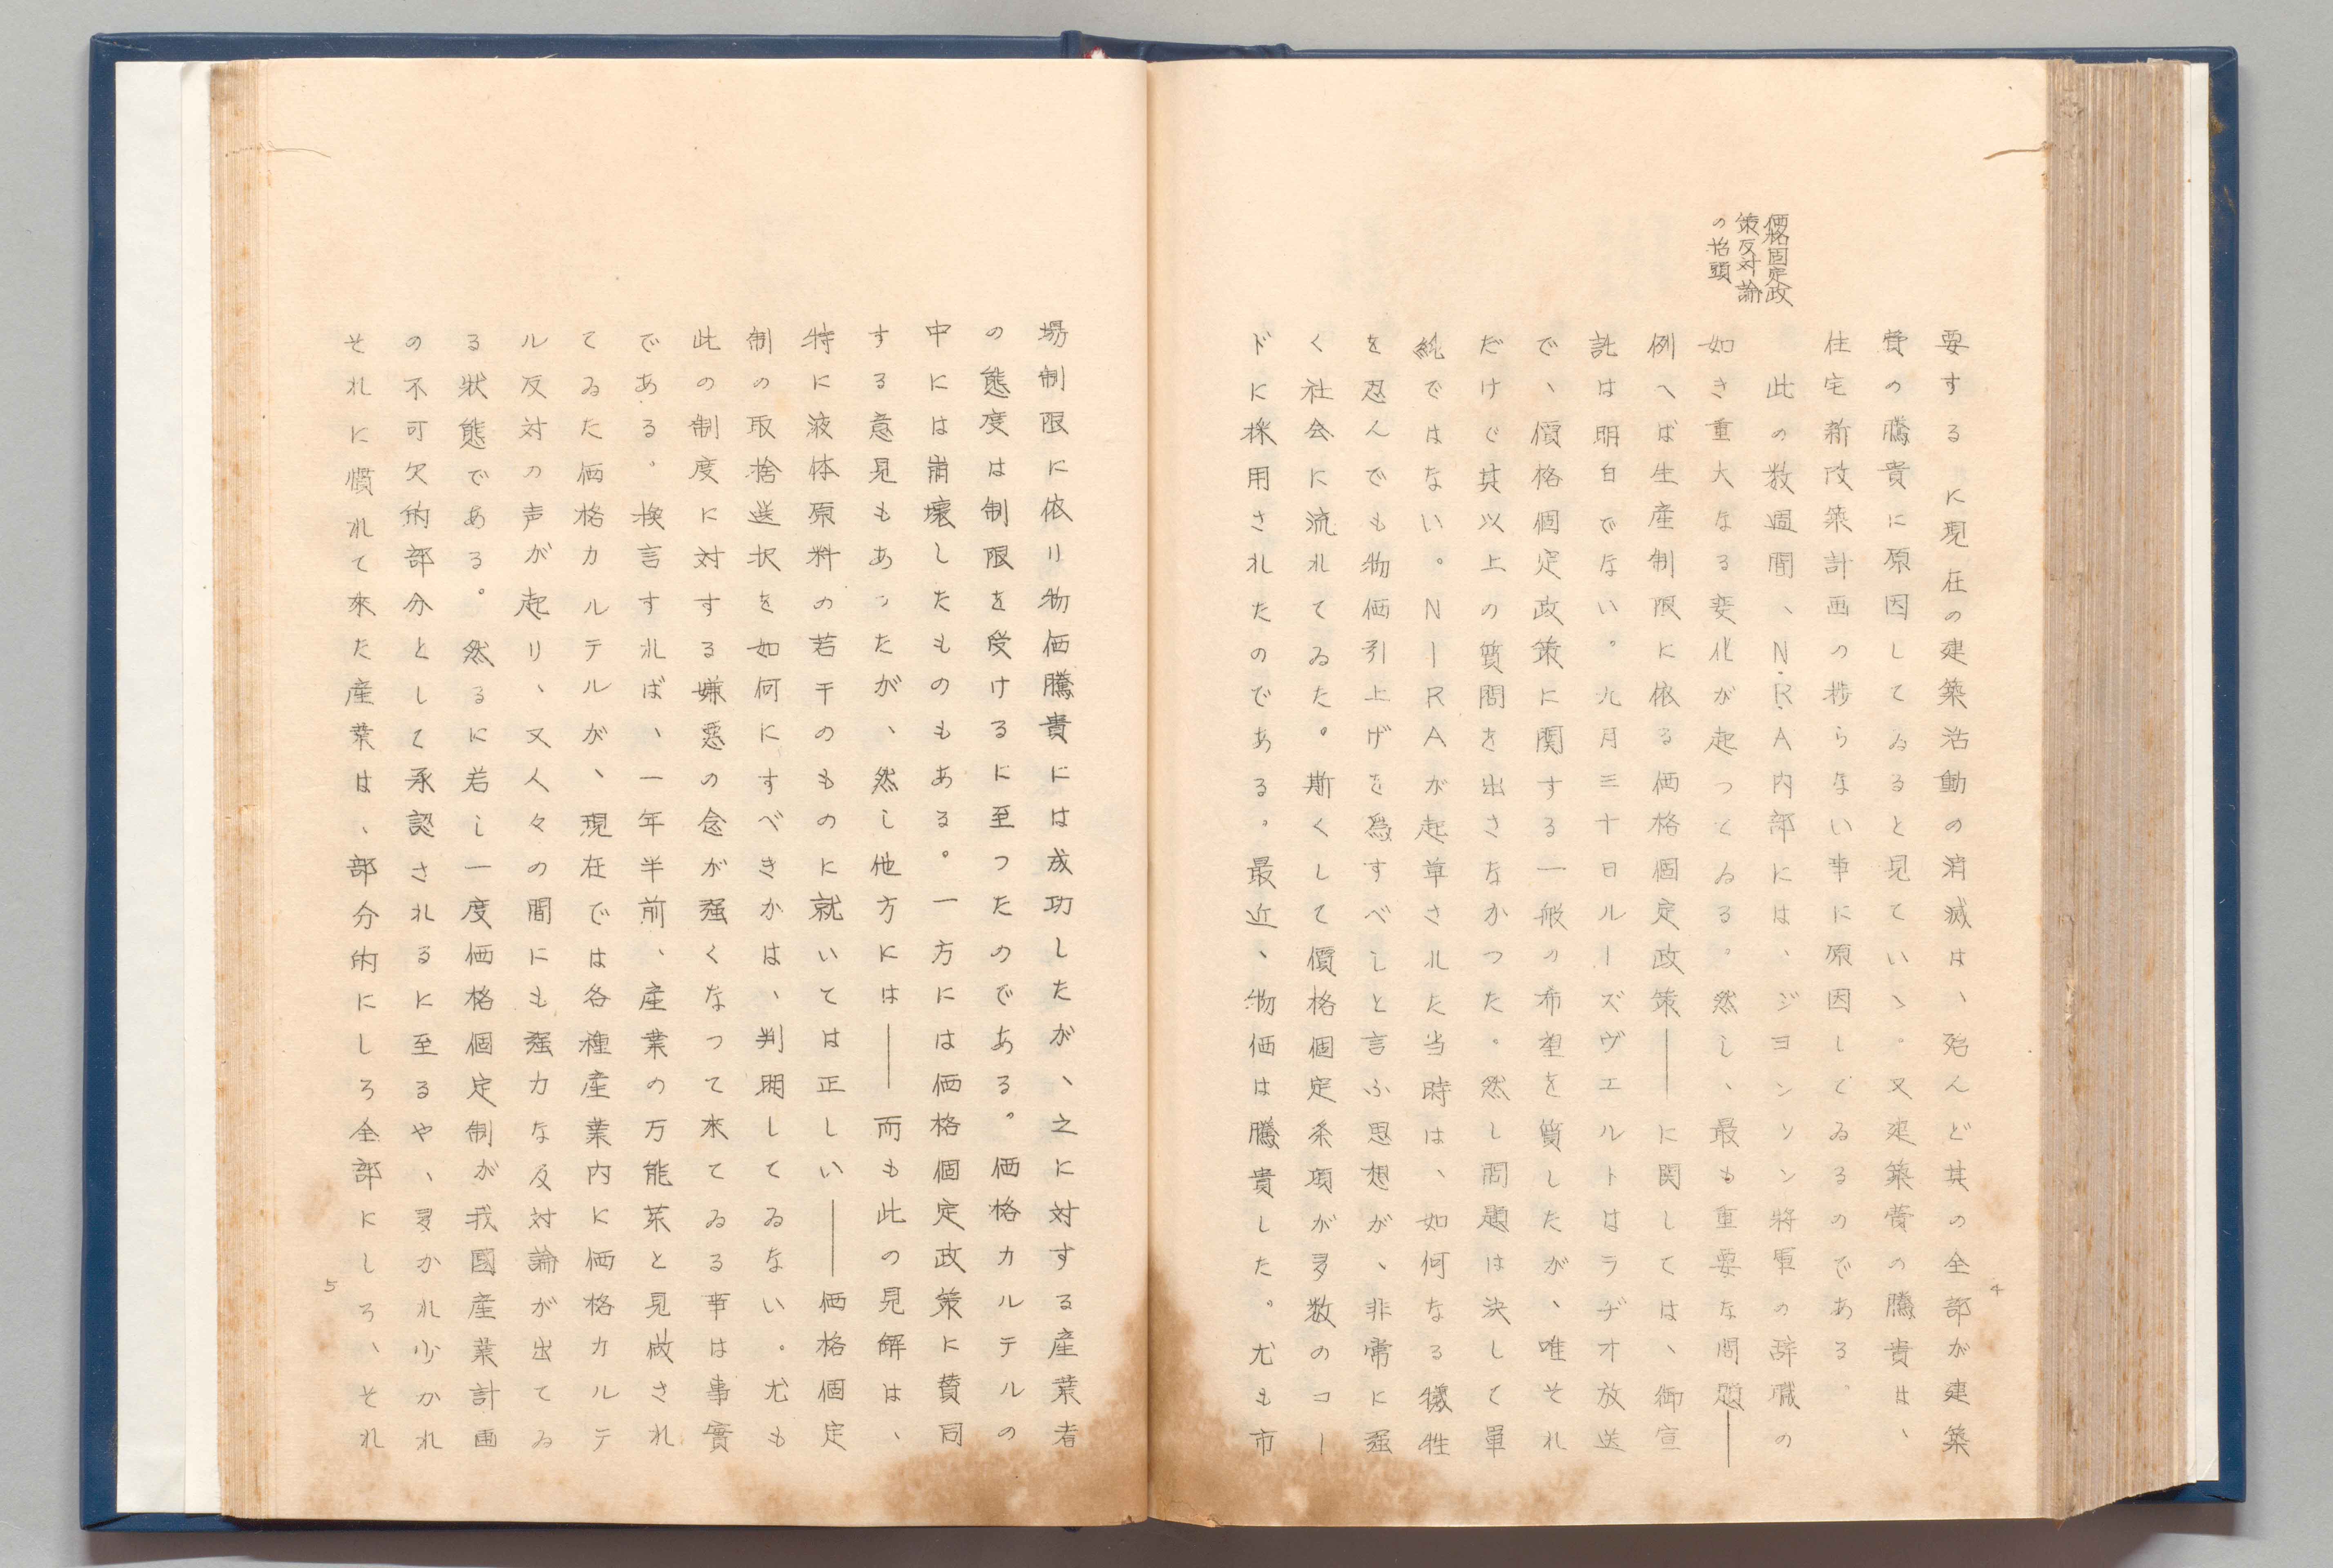 価格固定政
策反対論
の抬頭
要する に現在の建築活動の消滅は、殆んど其の全部が建築
費の騰貴に原因してゐると見ていゝ。又建築費の騰貴は、
住宅新改築計画の捗らない事に原因してゐるのである。
此の数週間、N.R.A内部には、ジヨンソン將軍の辞職の
如き重大なる変化が起つてゐる。然し、最も重要な問題――
例へば生産制限に依る価格個定政策――に関しては、御宣
託は明白でない。九月三十日ルーズヴエルトはラヂオ放送
で、價格個定政策に関する一般の希望を質したが、唯それ
だけで其以上の質問を出さなかつた。然し問題は決して單
純ではない。NIRAが起草された当時は、如何なる犠牲
を忍んでも物価引上げを為すべしと言ふ思想が、非常に强
く社会に流れてゐた。斯くして價格個定条項が多数のコー
ドに採用されたのである。最近、物価は騰貴した。尤も市
4
場制限に依り物価騰貴には成功したが、之に対する産業者
の態度は制限を受けるに至つたのである。価格カルテルの
中には崩壊したものもある。一方には価格個定政策に賛同
する意見もあつたが、然し他方には――而も此の見解は、
特に液体原料の若干のものに就いては正しい――価格個定
制の取捨送状を如何にすべきかは、判明してゐない。尤も
此の制度に対する嫌悪の念が强くなつて来てゐる事は事實
である。換言すれば、一年半前、産業の万能薬と見做され
てゐた価格カルテルが、現在では各種産業内に価格カルテ
ル反対の声が起り、又人々の間にも强力な反対論が出てゐ
る狀態である。然るに若し一度価格個定制が我國産業計画
の不可欠的部分として承認されるに至るや、多かれ少かれ
それに慣れて來た産業は、部分的にしろ全部にしろ、それ
5